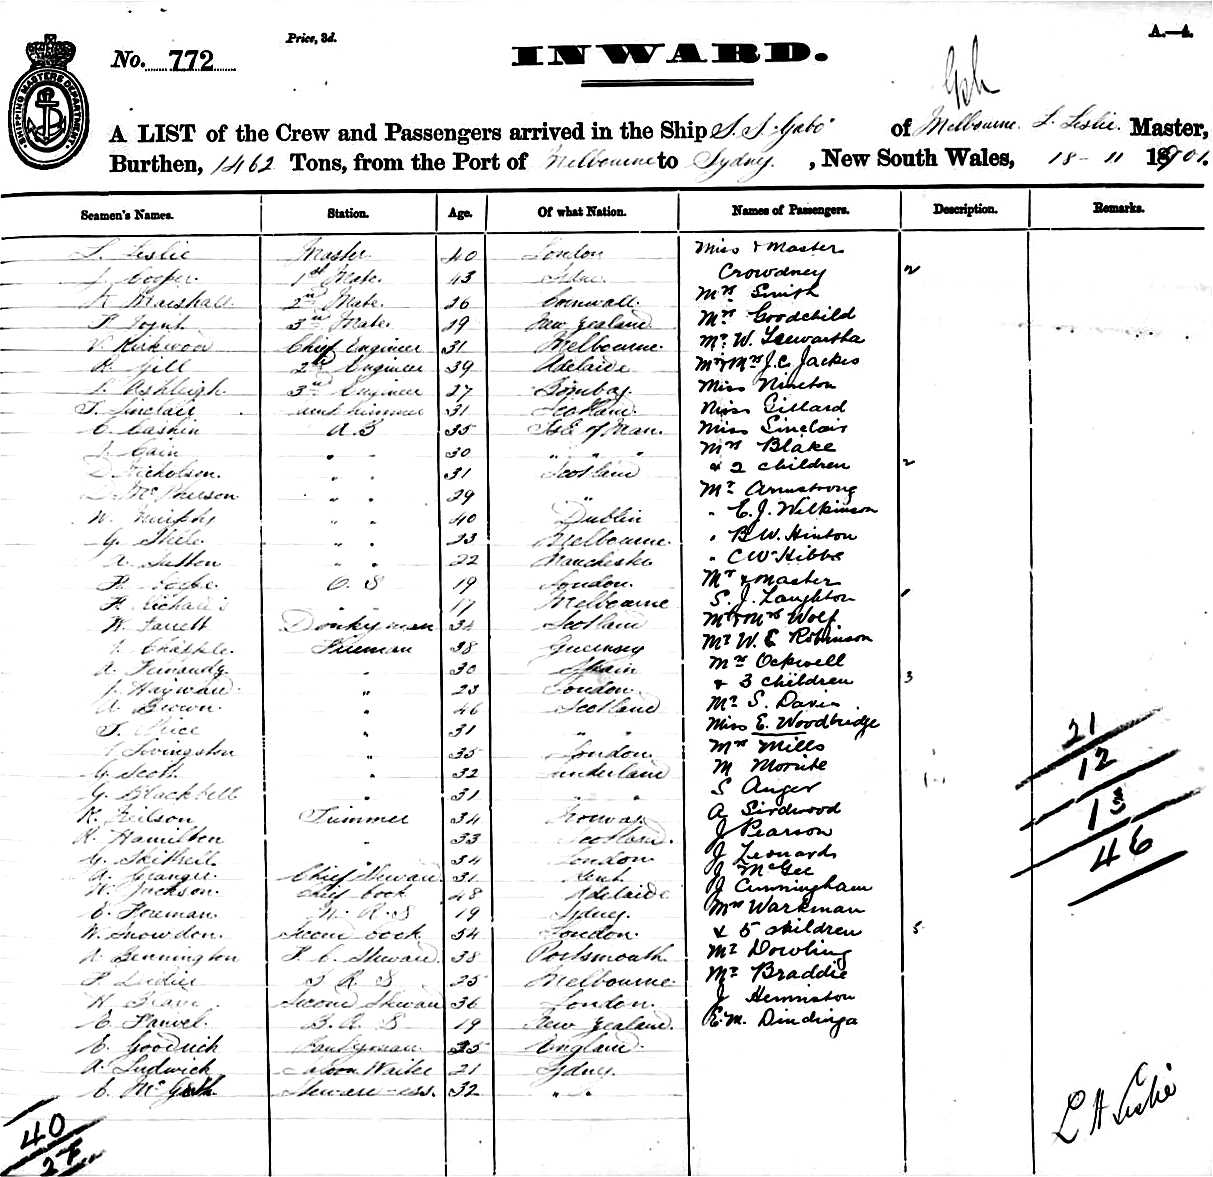 Price, 3d.
A.—4.
No. 772
INWARD.
SHIPPING MASTERS DEPARTMENT
A LIST of the Crew and Passengers arrived in the Ship S. S. Gabo of Melbourne. L. Leslie. Master,
Burthen, 1462 Tons, from the Port of Melbourne to Sydney, New South Wales, 18 - 11 1901.
Seamen's Names. Station. Age. Of what Nation. Names of Passengers. Description. Remarks.
L. Leslie Master 40 London Miss & Master
J. Cooper. 1st Mate. 43 Crowdney 2
Marshall 2nd Mate. 26 Cornwall. Mrs Smith
3rd Mate. 29 New Zealand Mrs Goodchild
Kirkwood Chief Engineer 31 Melbourne. Mr W. Trewartha
Gill 2nd Engineer 39 Adelaide Mr & Mrs J. C. Jackes
Ashleigh. 3rd Engineer 27 Bombay. Miss Nineton
T. Sinclair 31 Scotland Miss Gillard
C. Cashin A. B 35 Isle of Man. Miss Sinclair
Cain " " 30 " " " Mrs Blake
D. Nicholson. " " 31 Scotland & 2 children 2
D. McPherson " " 29 " Mr Armstrong
W. Murphy " " 40 Dublin " E. J. Wilkinson
G. " " 23 Melbourne. " B. W. Hinton
A. Sutton " " 22 Manchester " C W Hibbs
O. S 19 London. Mrs & Master
" " 17 Melbourne S. J. Laughton 1
W. Jarrett Donkeyman 34 Scotland Mr & Mrs Wolf
Fireman 38 Guernsey Mr W. E Robinson
A. Fernandy " 30 Spain Mrs Ockwell
J. Hayward " 23 London. & 3 children 3
A. Brown. " 46 Scotland Mr S. Davis.
T. Price " 31 " " Miss E. Woodbridge
Livingston " 35 London. Mrs Mills
G. Scott " 32 Sunderland M Morrite
G. Blackbell " 31 " S Anger
K. Neilson Trimmer 34 Norway A Sirdwood
H. Hamilton " 33 Scotland. J Pearson
G. " 34 London J Leonards
A. Granger Chief Steward 31 Kent. J McGee
W. Jackson. Chief Cook 48 Adelaide J Cunningham
E. Foreman. 19 Sydney. Mrs Warkman
W. Snowdon. Second Cook 54 London. & 5 children 5
A. Bennington F. C. Steward 38 Portsmouth Mr Dowling
25 Melbourne Mr Braddie
H. Second Steward 36 London. J Hermiston
19 New Zealand. E. M. Dindinga
E. Goodrich Pantryman 25 England
A. Ludwick Saloon Waiter 21 Sydney.
E. McGrath Steward-ess. 32 " "
21
12
13
46
40
27
L H Leslie